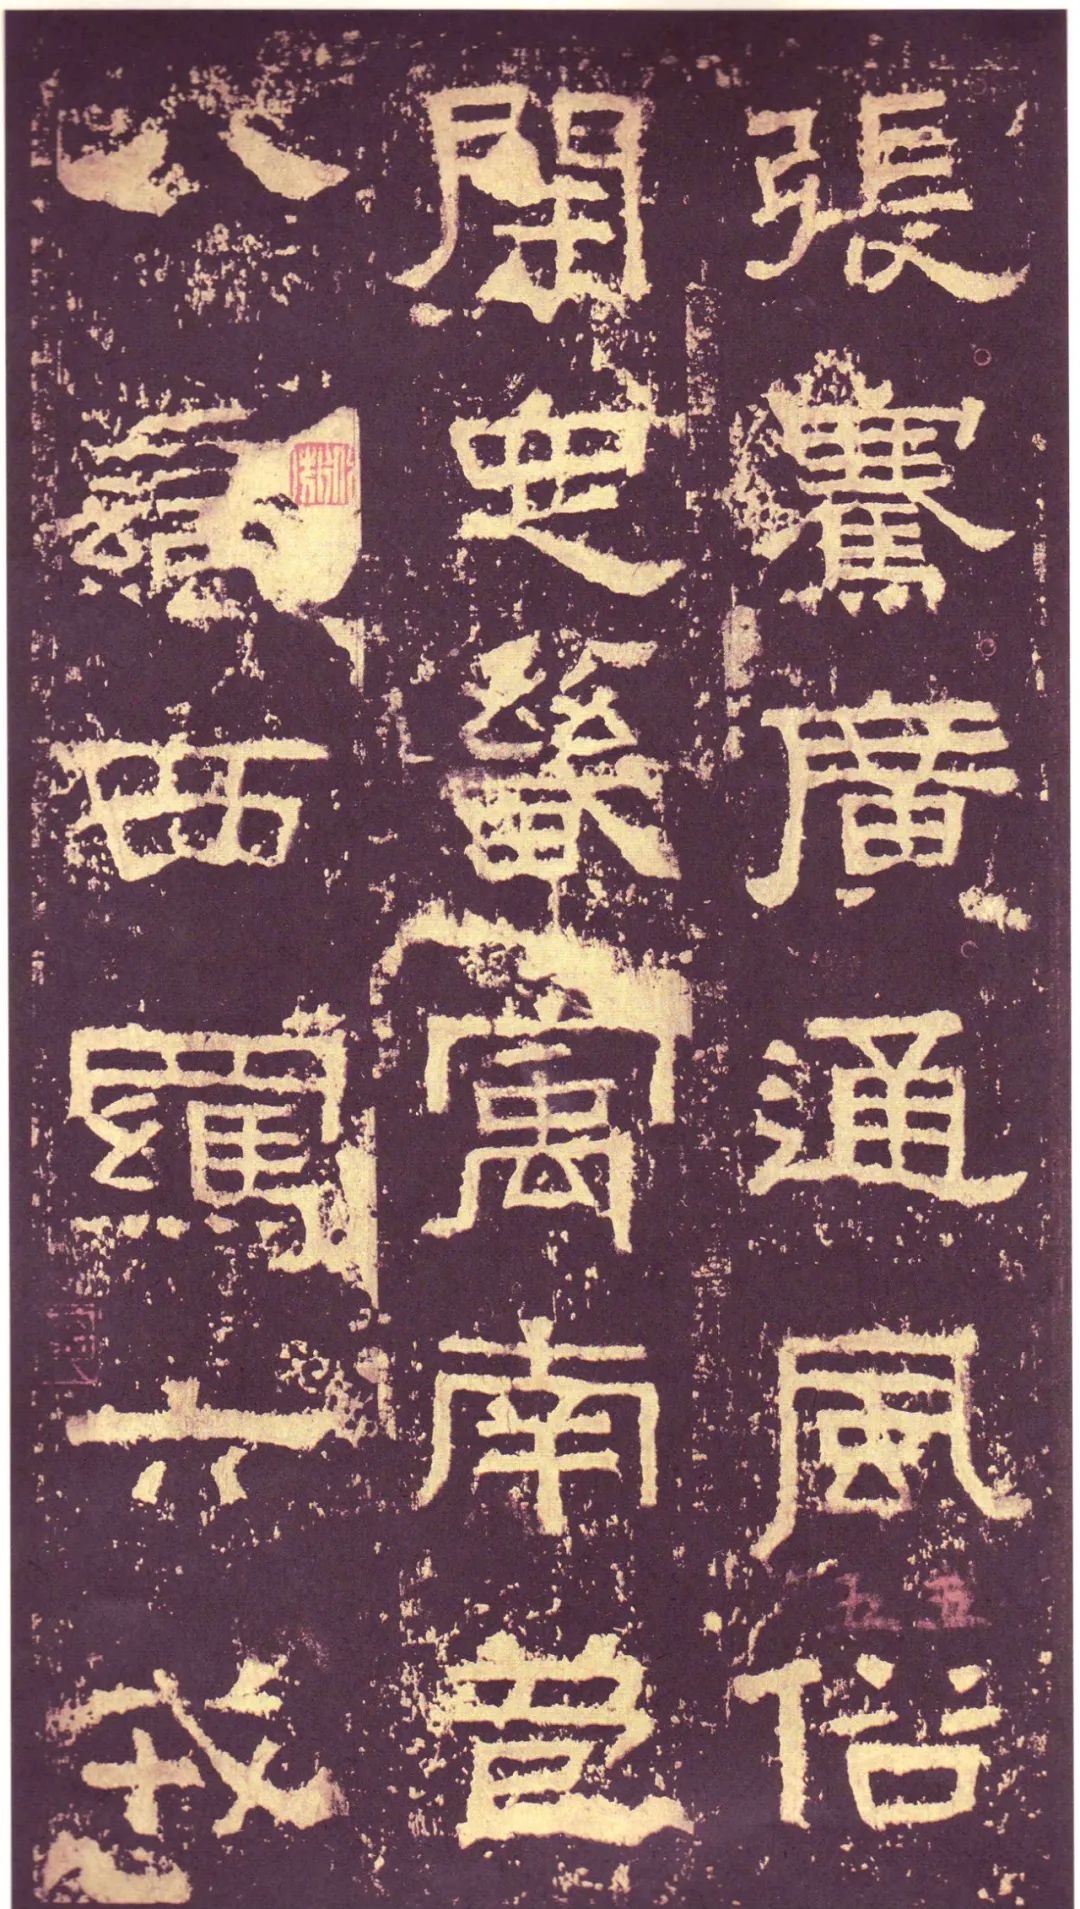 張騫廣通風俗
開定畿㝢南苞
八蠻西羈六戎
五五